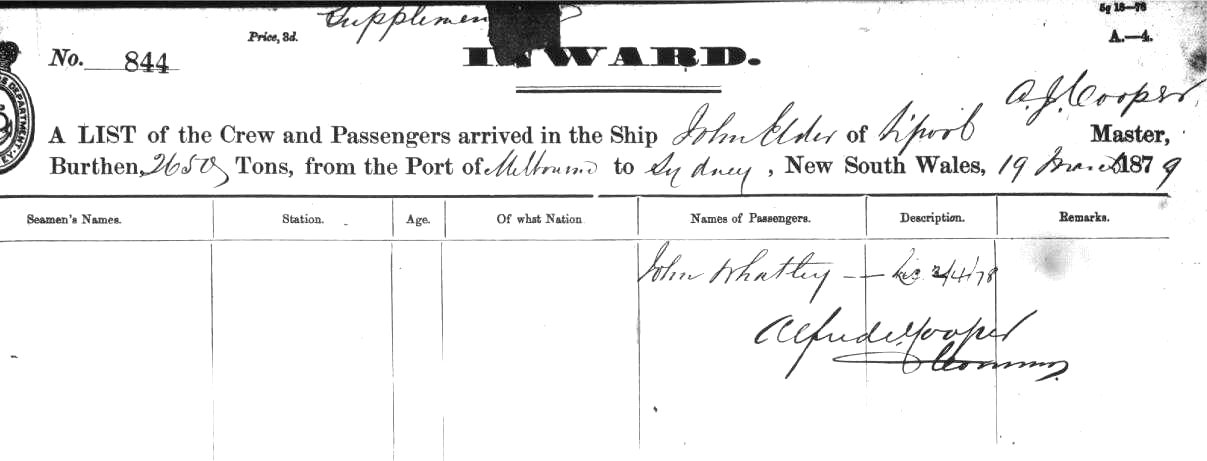 Supplemen
5g 18—78
Price, 3d.
A.—4.
No. 844
INWARD.
A. J. Cooper,
A LIST of the Crew and Passengers arrived in the Ship John Elder of L'pool Master,
Burthen, 2650 Tons, from the Port of Melbourne to Sydney, New South Wales, 19 March 1879
Seamen's Names. Station. Age. Of what Nation Names of Passengers. Description. Remarks.
John Whatley —— 2/4/78
Alfred J Cooper